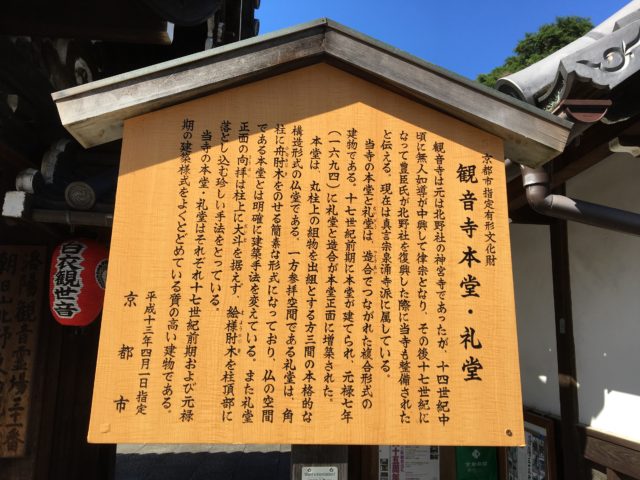 京都市指定有形文化財
観音寺本堂・礼堂
観音寺は元は北野社の神宮寺であったが、十四世紀中
頃に無人如導が中興して律宗となり、その後十七世紀に
なって豊臣氏が北野社を復興した際に当寺も整備された
と伝える。現在は真言宗泉涌寺派に属している。
当寺の本堂と礼堂は、造合でつながれた複合形式の
建物である。十七世紀前期に本堂が建てられ、元禄七年
(一六九四)に礼堂と造合が本堂正面に増築された。
本堂は、丸柱上の組物を出組とする方三間の本格的な
構造形式の仏堂である。一方参拝空間である礼堂は、角
柱に舟肘木をのせる簡素な形式になっており、仏の空間
である本堂とは明確に建築手法を変えている。また礼堂
正面の向拝は柱上に大斗を据えず、絵様肘木を柱頂部に
落とし込む珍しい手法をとっている。
当寺の本堂・礼堂はそれぞれ十七世紀前期および元禄
期の建築様式をよくとどめている質の高い建物である。
平成十三年四月一日指定
京都市
白衣観世音
洛陽観音霊場三十一番
朝日山北野